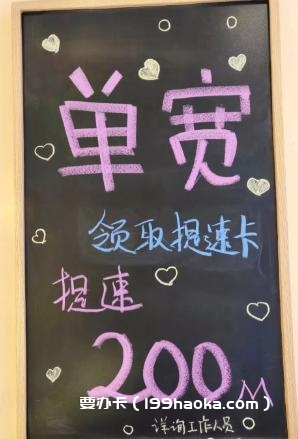 单宽
领取提速卡
提速
200M
要办卡（199haoka.com）
详询工作人员